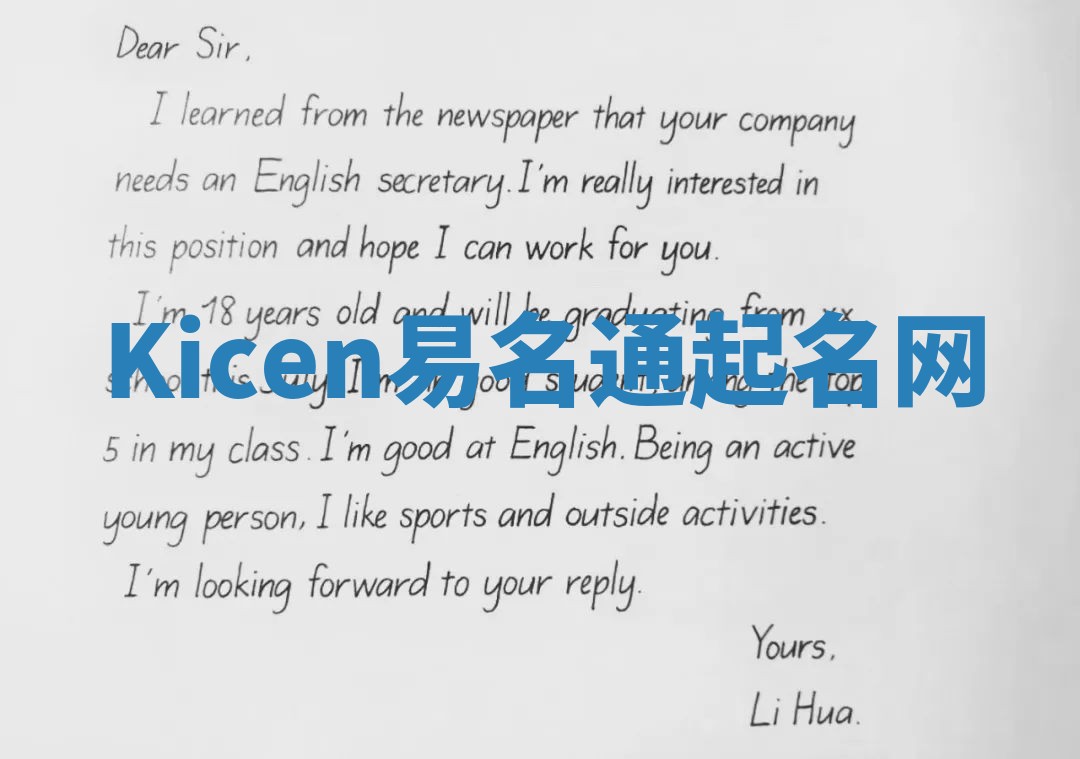 Dear Sir,
I learned from the newspaper that your company
needs an English secretary. I'm really interested in
this position and hope I can work for you.
I'm 18 years old and will be graduating from xx
Kicen易名通起名网
school this July. I'm a good student, among the top
5 in my class. I'm good at English. Being an active
young person, I like sports and outside activities.
I'm looking forward to your reply.
Yours,
Li Hua.